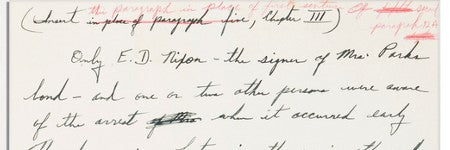 the paragraph in place of first sent of
(Insert in place of paragraph five, Chapter III)
Only E. D. Nixon - the signer of Mrs. Parks
bond - and one or two other persons were aware
of the arrest when it occurred early